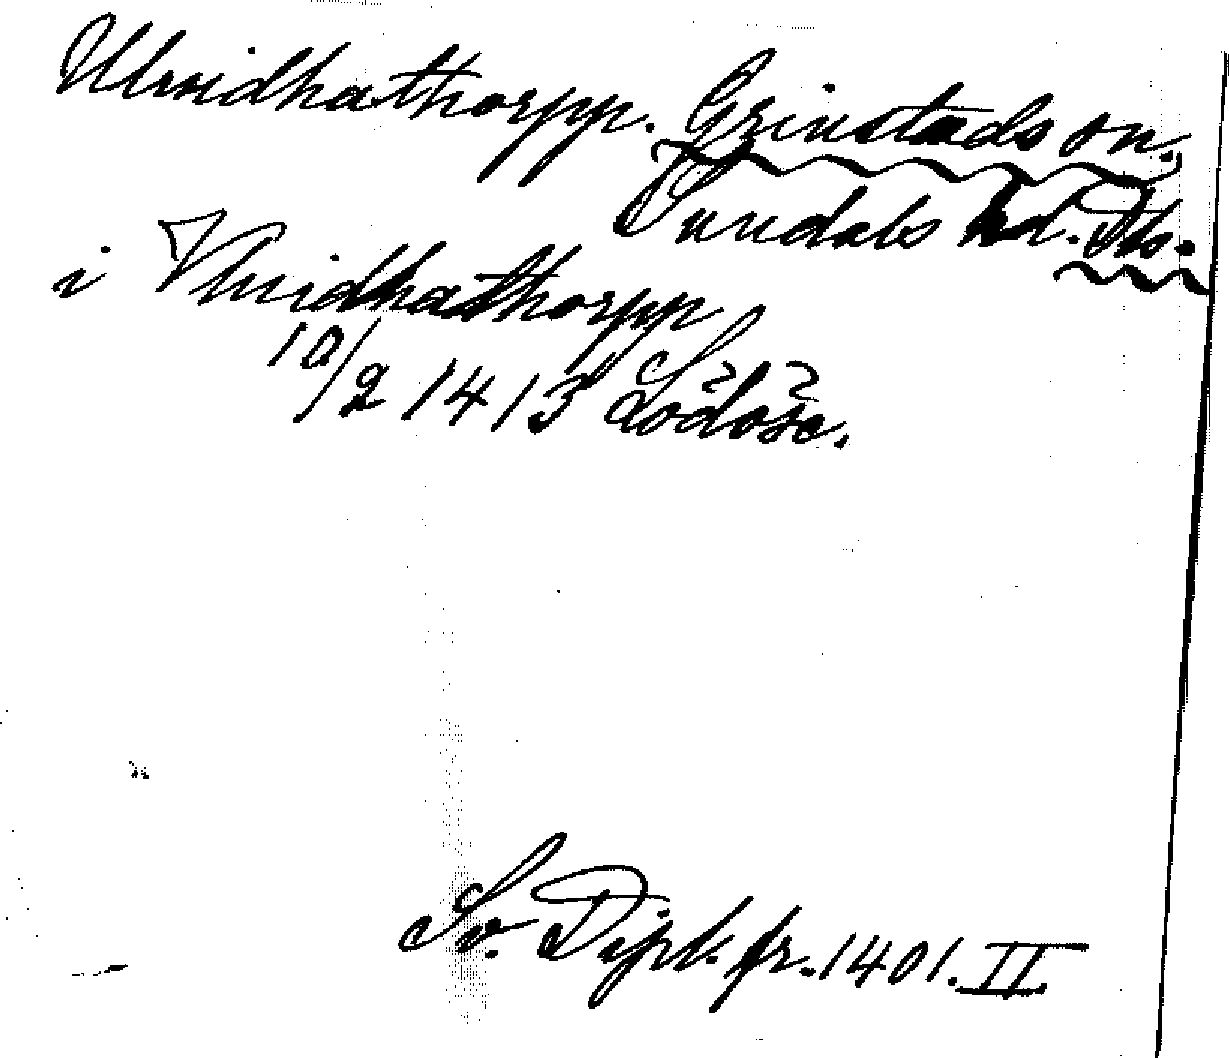 Ulvidhathorpp. Grinstads sn.
Sundals hd. Dls.
i Vluidhathorpp
10/2 1413 Lödöse.
Sv. Dipl. fr. 1401. II